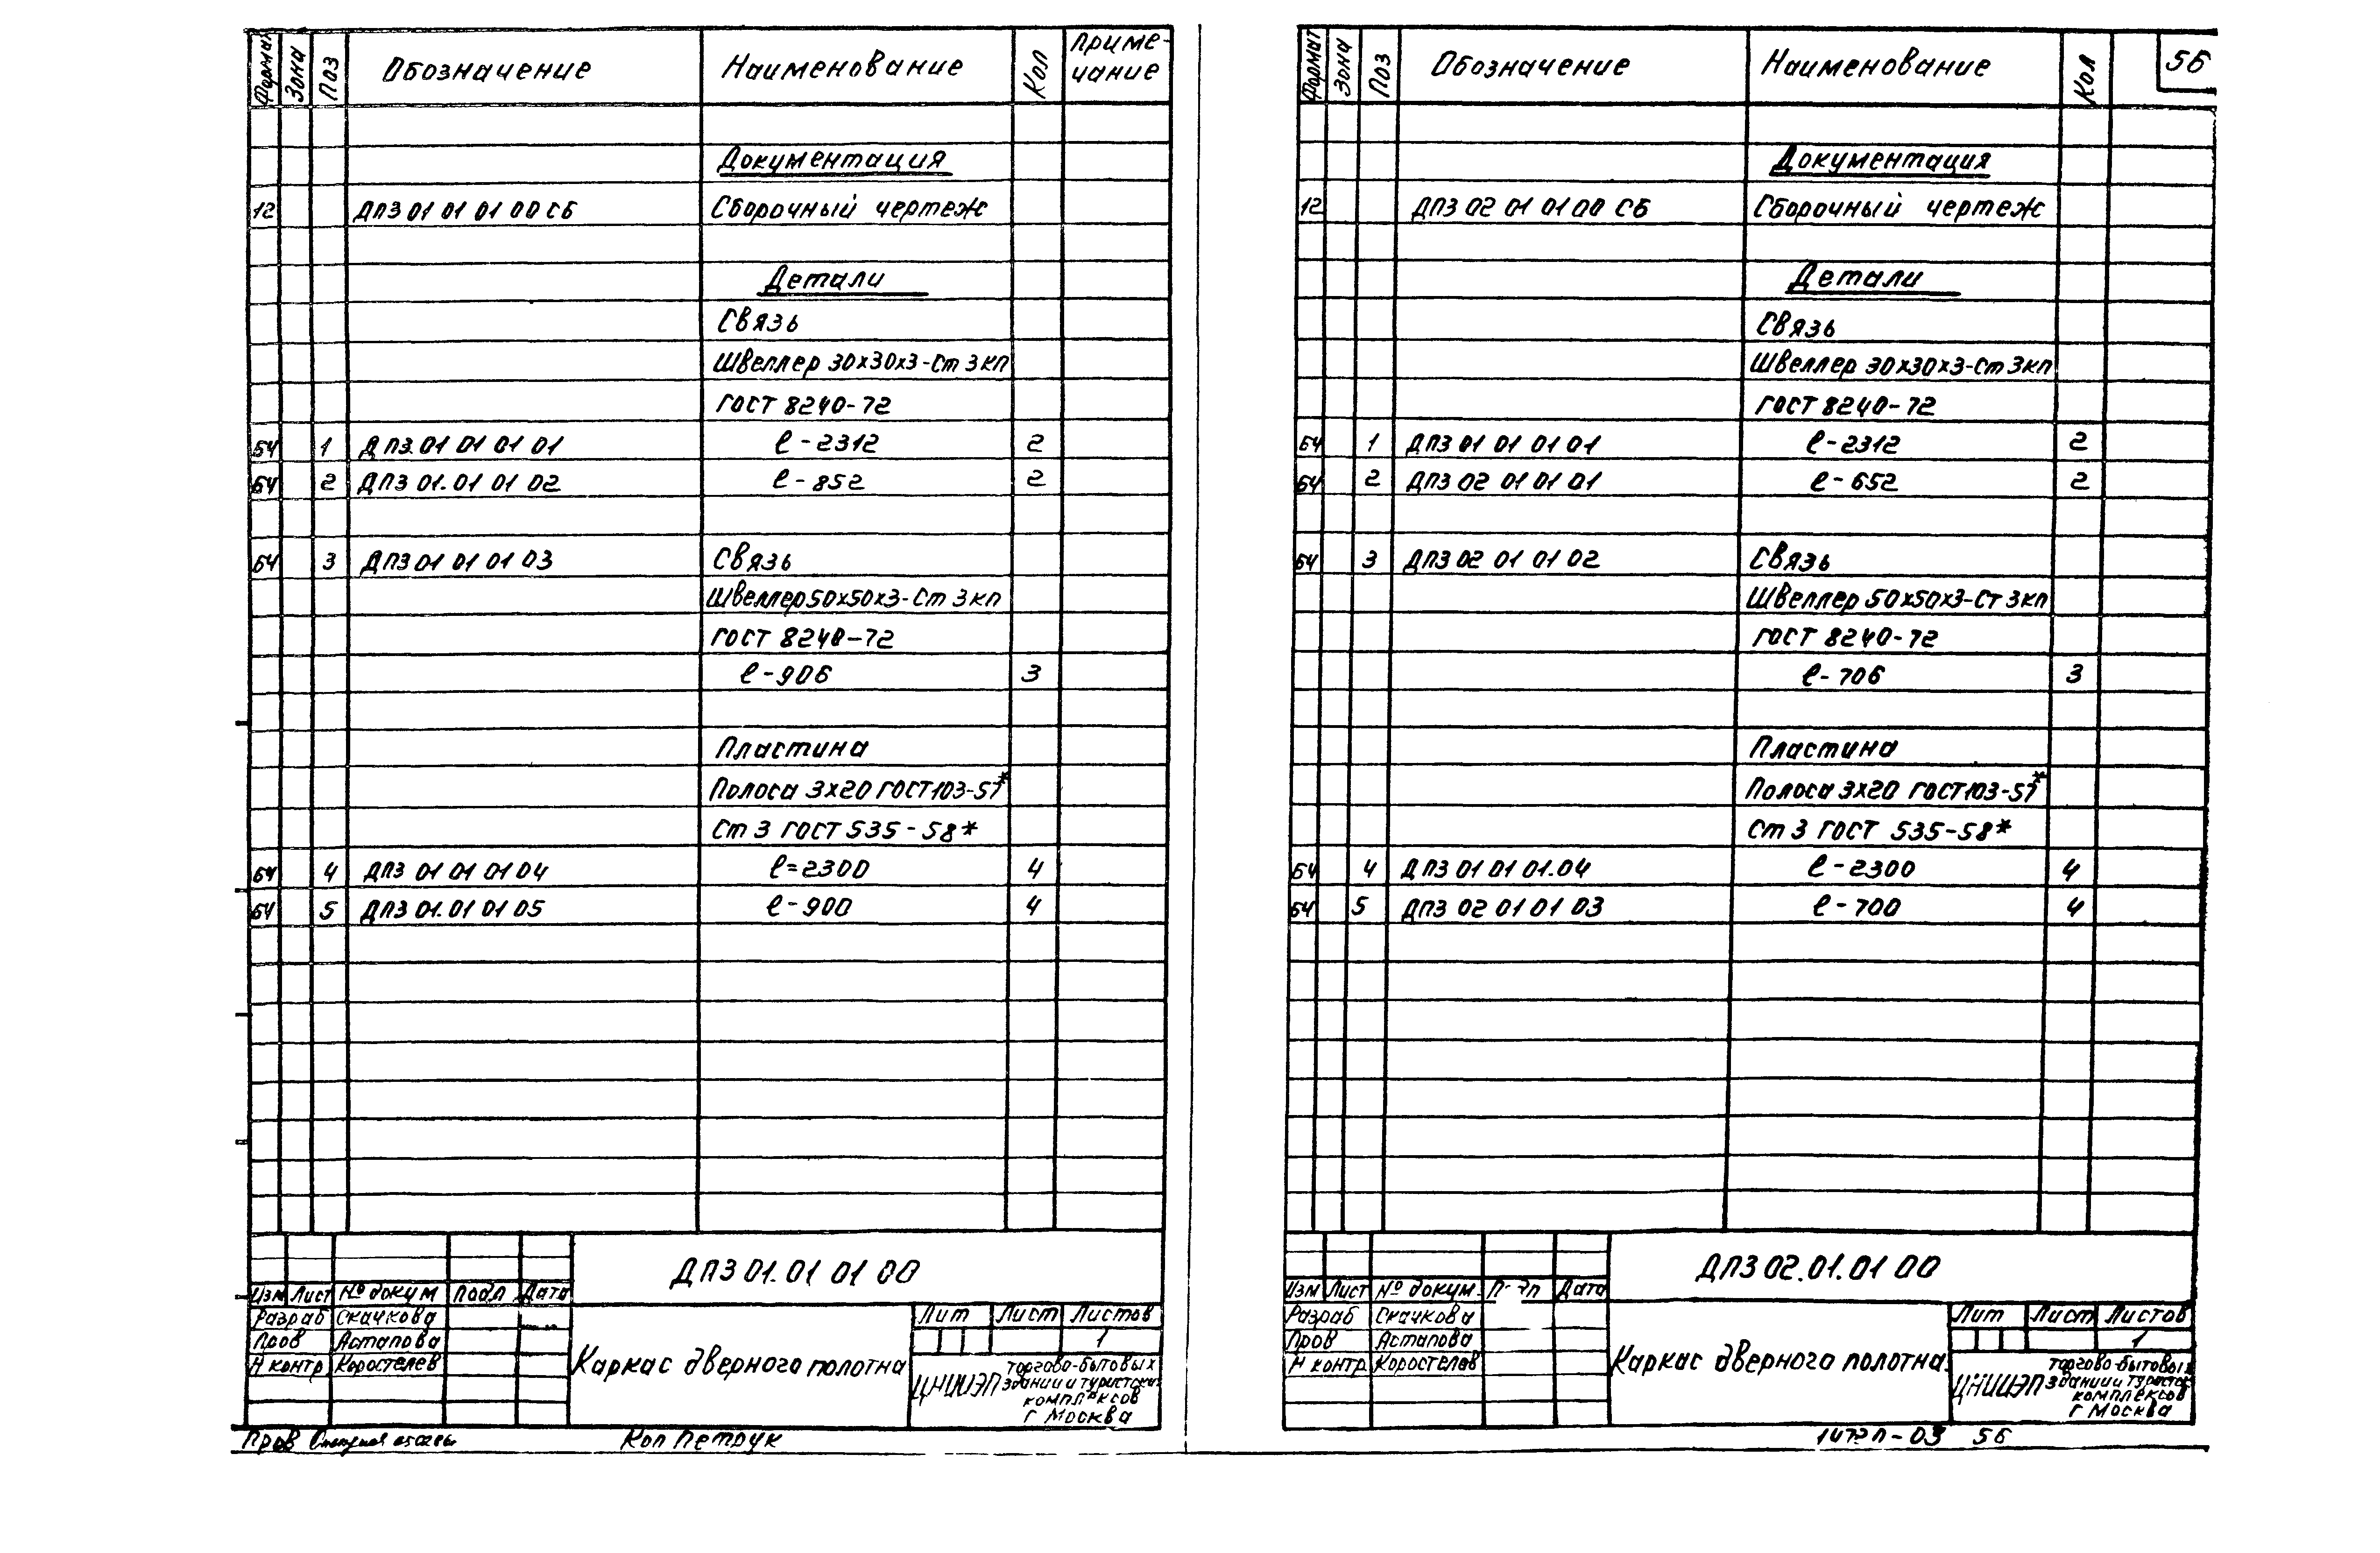 Формат Зона Поз Обозначение Наименование Кол Приме-
чание
Документация
12 ДПЗ 01 01 01 00 СБ Сборочный чертеж
Детали
Связь
Швеллер 30х30х3-Ст 3кп
ГОСТ 8240-72
БЧ 1 ДПЗ.01 01 01 01 ℓ-2312 2
БЧ 2 ДПЗ 01.01 01 02 ℓ-852 2
БЧ 3 ДПЗ 01 01 01 03 Связь
Швеллер 50х50х3-Ст 3кп
ГОСТ 8240-72
ℓ-906 3
Пластина
Полоса 3х20 ГОСТ 103-57*
Ст 3 ГОСТ 535-58*
БЧ 4 ДПЗ 01 01 01 04 ℓ=2300 4
БЧ 5 ДПЗ 01.01 01 05 ℓ-900 4
ДПЗ 01.01 01 00
Изм Лист № докум Подп Дата
Разраб Скачкова
Пров Астапова
Н контр Коростелев
Каркас дверного полотна
Лит Лист Листов
1
ЦНИИЭП торгово-бытовых
зданий и туристск
комплексов
г Москва
Пров
Коп Петрук
Формат Зона Поз Обозначение Наименование Кол
56
Документация
12 ДПЗ 02 01 01 00 СБ Сборочный чертеж
Детали
Связь
Швеллер 30х30х3-Ст 3кп
ГОСТ 8240-72
БЧ 1 ДПЗ 01 01 01 01 ℓ-2312 2
БЧ 2 ДПЗ 02 01 01 01 ℓ-652 2
БЧ 3 ДПЗ 02 01 01 02 Связь
Швеллер 50х50х3-Ст 3кп
ГОСТ 8240-72
ℓ-706 3
Пластина
Полоса 3х20 ГОСТ 103-57*
Ст 3 ГОСТ 535-58*
БЧ 4 ДПЗ 01 01 01.04 ℓ-2300 4
БЧ 5 ДПЗ 02 01 01 03 ℓ-700 4
ДПЗ 02.01.01 00
Изм Лист № докум. Дата
Разраб Скачкова
Пров Астапова
Н контр Коростелев
Каркас дверного полотна
Лит Лист Листов
1
ЦНИИЭП торгово-бытовых
зданий и турист
комплексов
г Москва
56